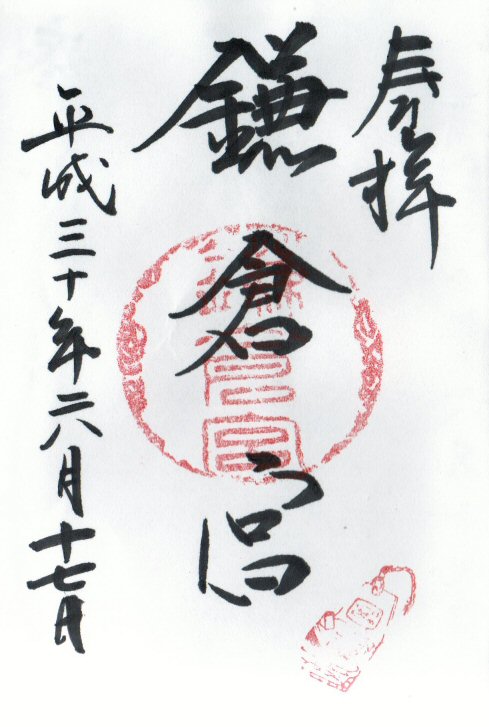 奉拝
鎌倉宮
平成三十年六月十七日